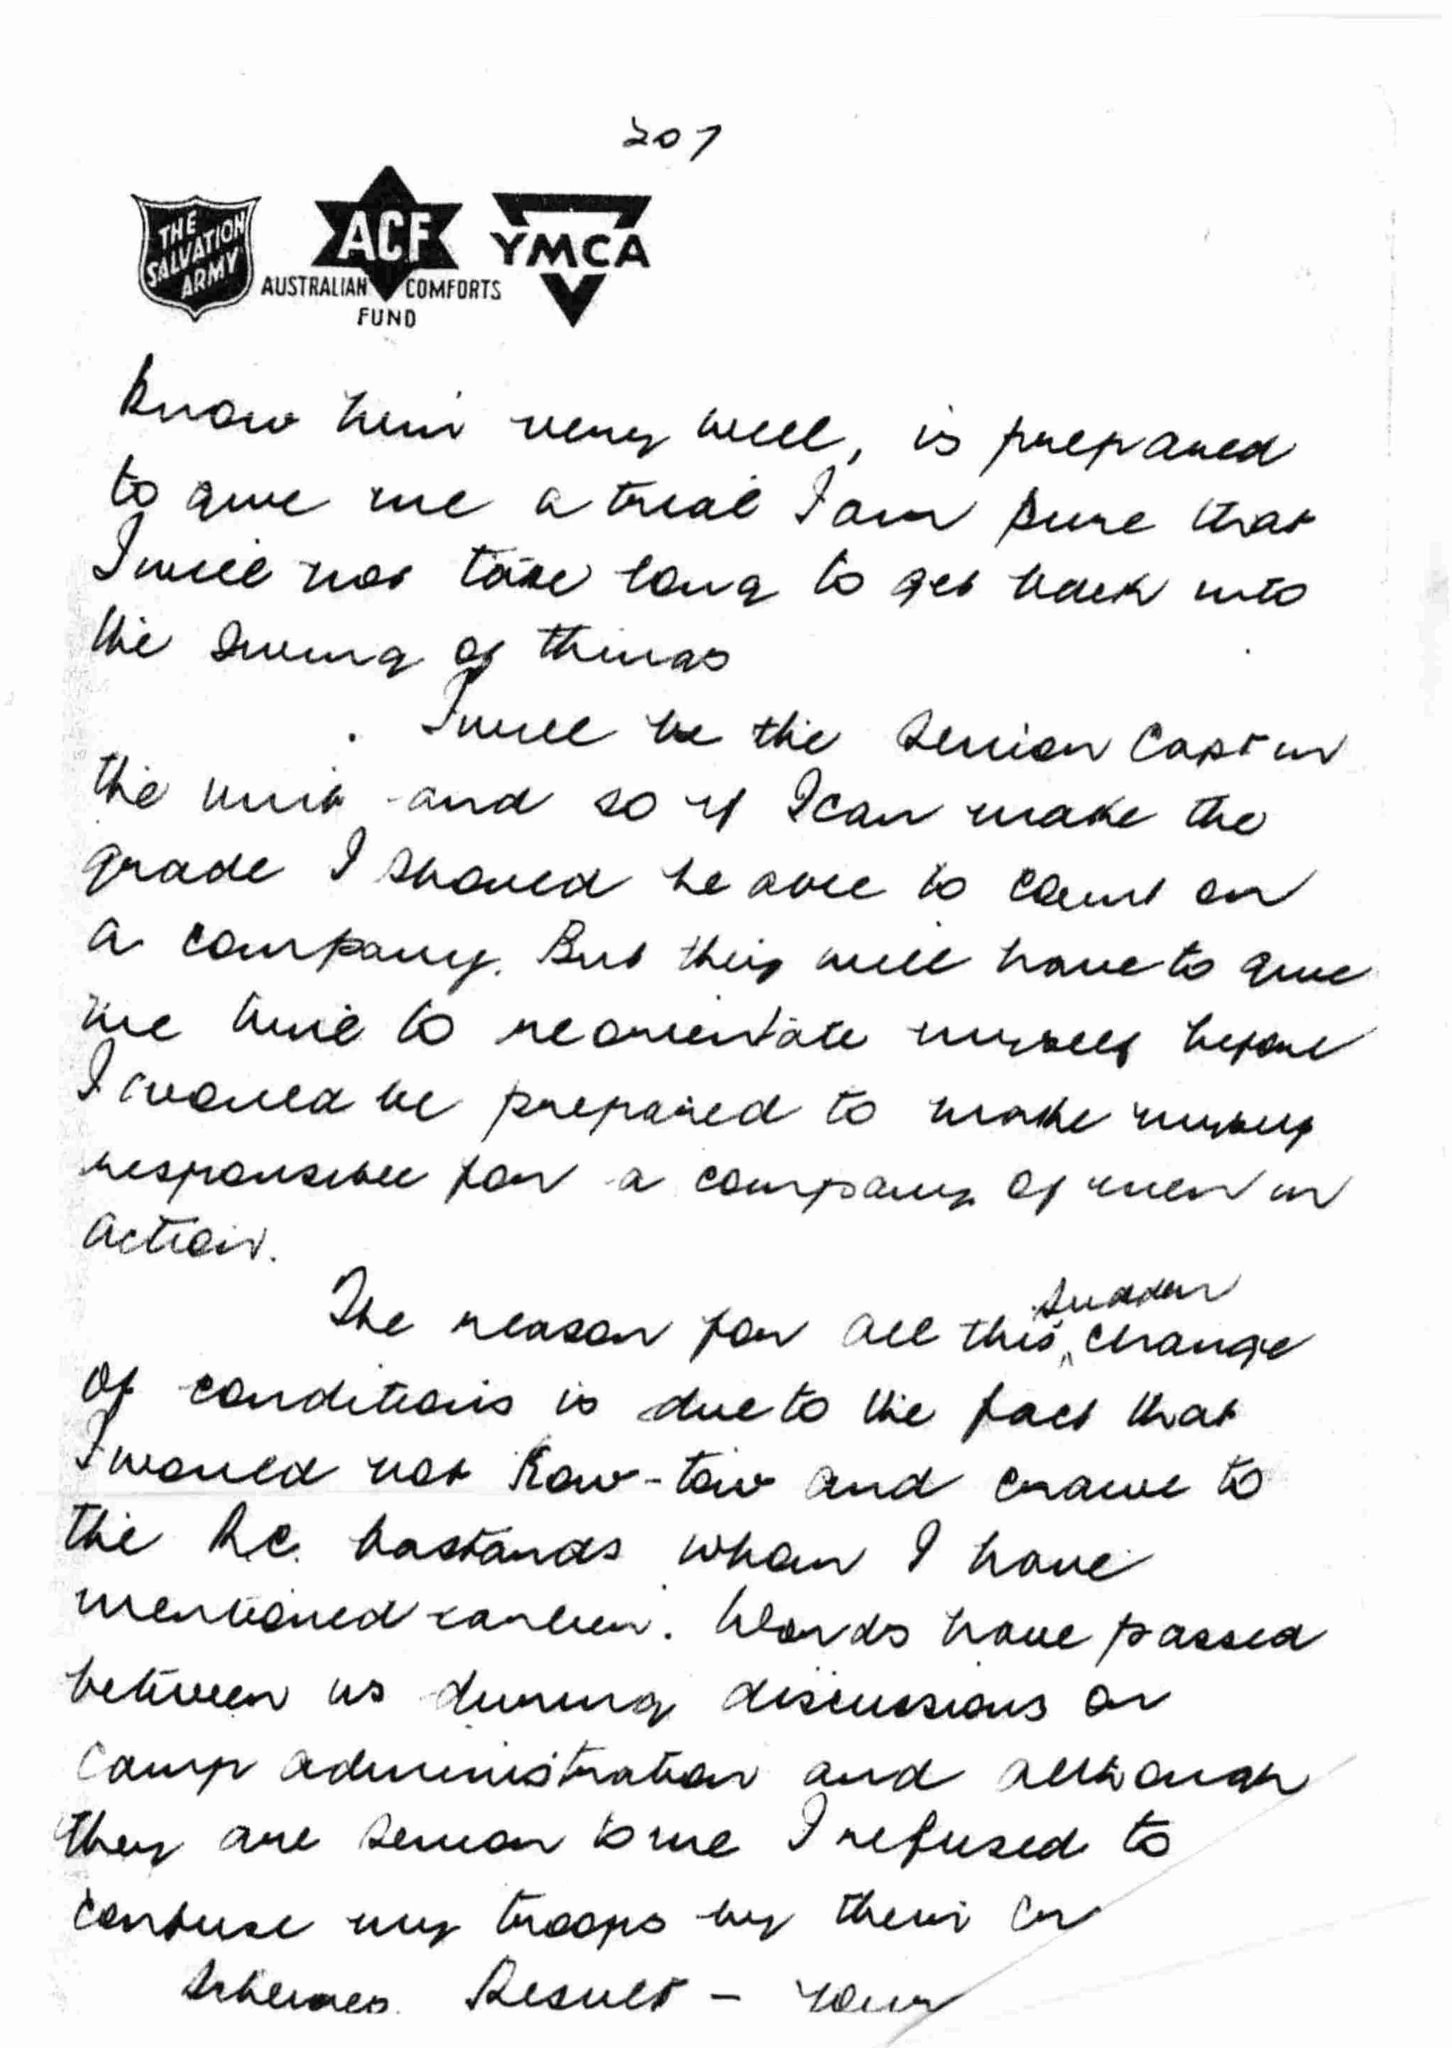 207
THE
SALVATION
ARMY
ACF
AUSTRALIAN COMFORTS
FUND
YMCA
know him very well, is prepared
to give me a trial I am sure that
I will not take long to get back into
the swing of things
I will be the senior Capt in
the unit and so if I can make the
grade I should be able to count on
a company. But they will have to give
me time to reorientate myself before
I would be prepared to make myself
responsible for a company of men in
action.
The reason for all this sudden change
of conditions is due to the fact that
I would not Kow-tow and crawl to
the R.C. bastards whom I have
mentioned earlier. Words have passed
between us during discussions on
camp administration and although
they are senior to me I refused to
confuse my troops by their
schemes. Result - your